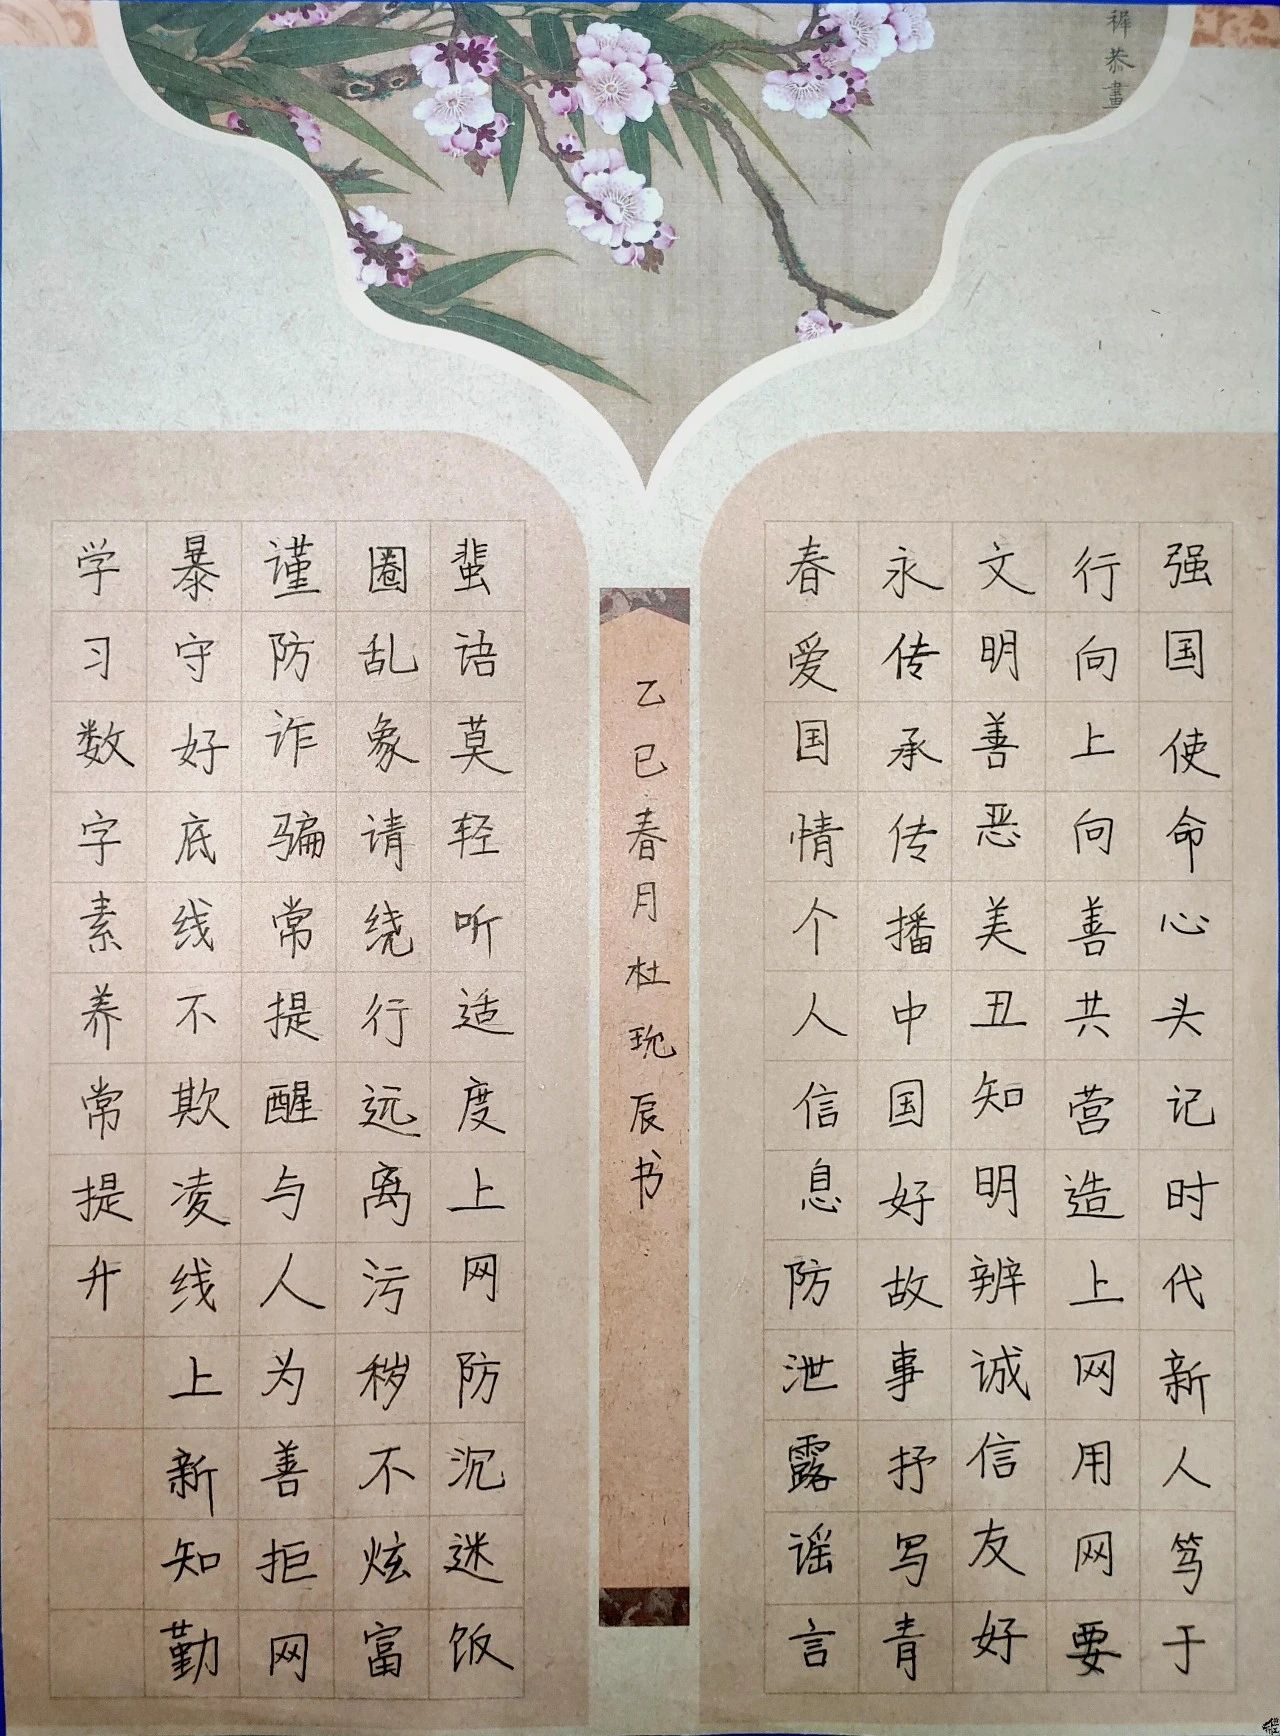 强国使命心头记时代新人笃于
行向上向善共营造上网用网要
文明善恶美丑知明辨诚信友好
永传承传播中国好故事抒写青
春爱国情个人信息防泄露谣言
蜚语莫轻听适度上网防沉迷饭
圈乱象请绕行远离污秽不炫富
谨防诈骗常提醒与人为善拒网
暴守好底线不欺凌线上新知勤
学习数字素养常提升
乙巳春月杜玧辰书
恭畫